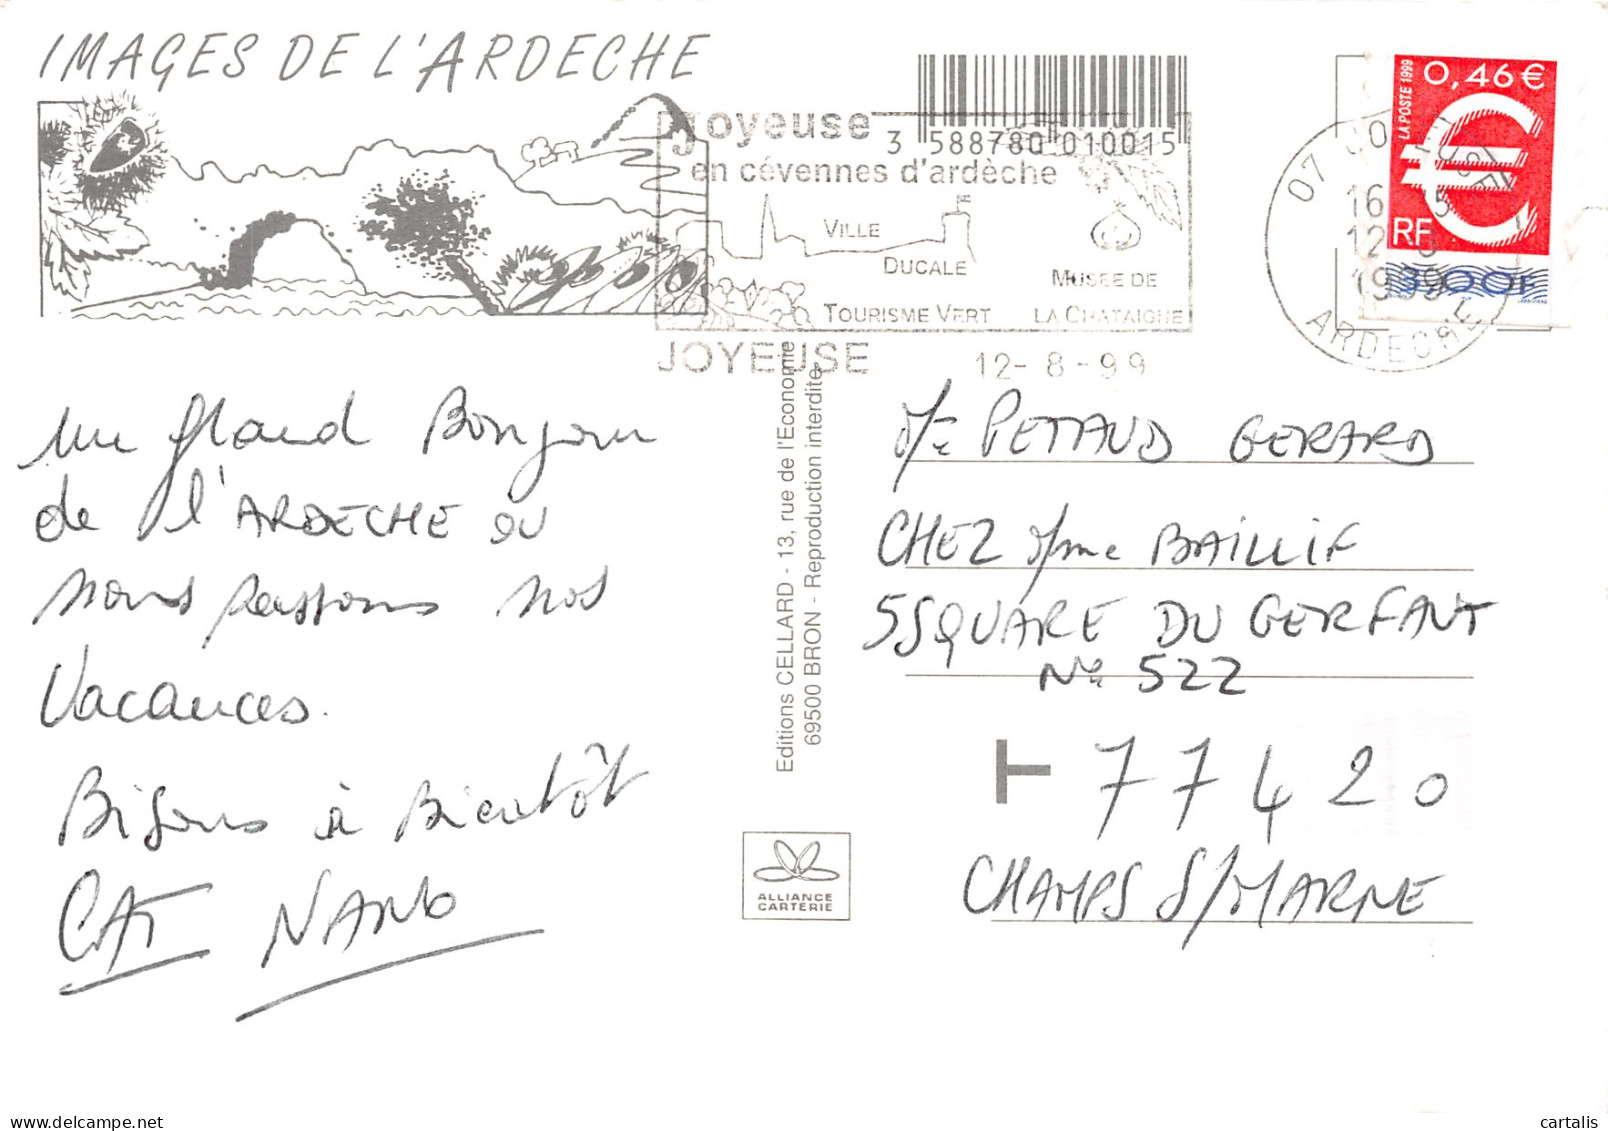 IMAGES DE L'ARDECHE
Joyeuse
en cévennes d'ardèche
VILLE
DUCALE
TOURISME VERT
MUSEE DE
LA CHATAIGNE
JOYEUSE
12-8-99
3 588780 010015
LA POSTE 1999
0,46 €
RF
3,00F
07 JOYEUSE
16
12-8
1999
ARDECHE
un grand Bonjour
de l'ARDECHE ou
nous passons nos
Vacances.
Bisous à Bientôt
CAT NANO
Editions CELLARD - 13, rue de l'Economie
69500 BRON - Reproduction interdite
ALLIANCE
CARTERIE
PETTAUD GERARD
CHEZ Mme BAILLIF
5 SQUARE DU GERFAUT
No 522
77420
CHAMPS S/MARNE
cartalis sur delcampe.net